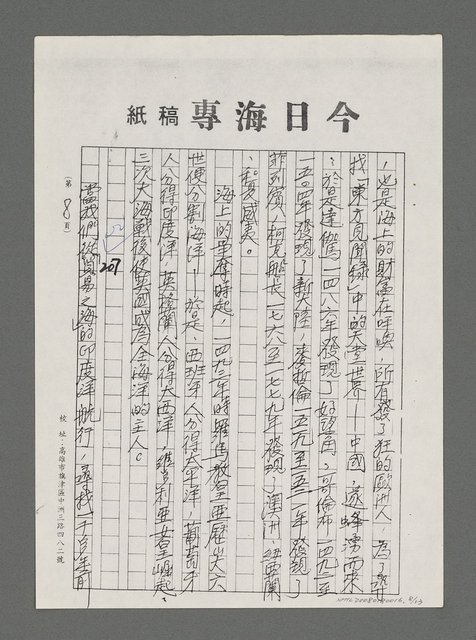 今日海專稿紙
，也是海上的財富在呼喚，所有發了狂的歐洲人，為了尋
找「東方見聞錄」中的天堂世界——中國，遂蜂湧而來
：於是達伽馬一四八六年發現了好望角，哥倫布一四九二至
一五〇四年發現了新大陸，麥哲倫一五一九至一五二一年發現了
菲列賓，柯克船長一七六八至一七七九年發現了澳洲、紐西蘭
、和夏威夷。
海上的爭奪時起，一四九三年時羅馬教皇亞歷山大六
世便分割海洋——於是，西班牙人分得太平洋，葡萄牙
人分得印度洋，英格蘭人分得大西洋，維多利亞若王崛起，
三次大海戰後使英國成為全海洋的主人。
207
當我們從貿易之海的印度洋航行，尋找一千多年前
（第 8 頁）
校址：高雄市旗津區中洲三路四八二號